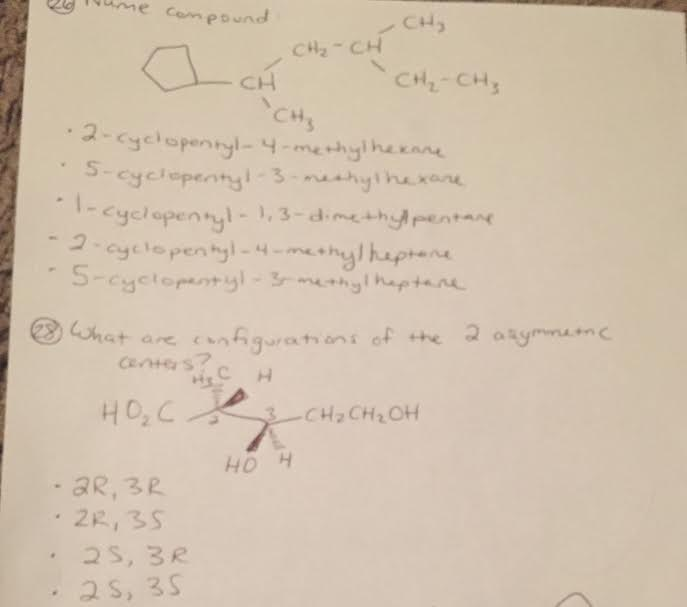 26 Name compound
CH3
CH2-CH
CH
CH2-CH3
CH3
• 2-cyclopentyl-4-methylhexane
• 5-cyclopentyl-3-methylhexane
• 1-cyclopentyl-1,3-dimethylpentane
- 2-cyclopentyl-4-methylheptane
- 5-cyclopentyl-3-methylheptane
28 What are configurations of the 2 asymmetric
centers?
H3C H
HO2C 2 3 CH2CH2OH
HO H
• 2R, 3R
• 2R, 3S
• 2S, 3R
• 2S, 3S